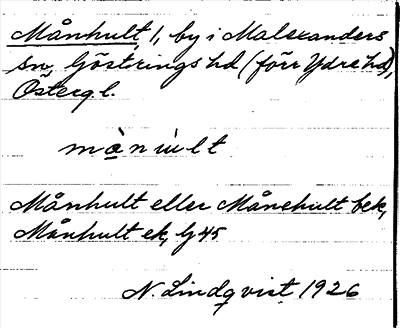 Månhult, 1, by i Malexanders
sn, Göstrings hd (förr Ydre hd),
Östergl.
mànùlt
Månhult eller Månehult bek,
Månhult ek, bj 45
N. Lindqvist 1926